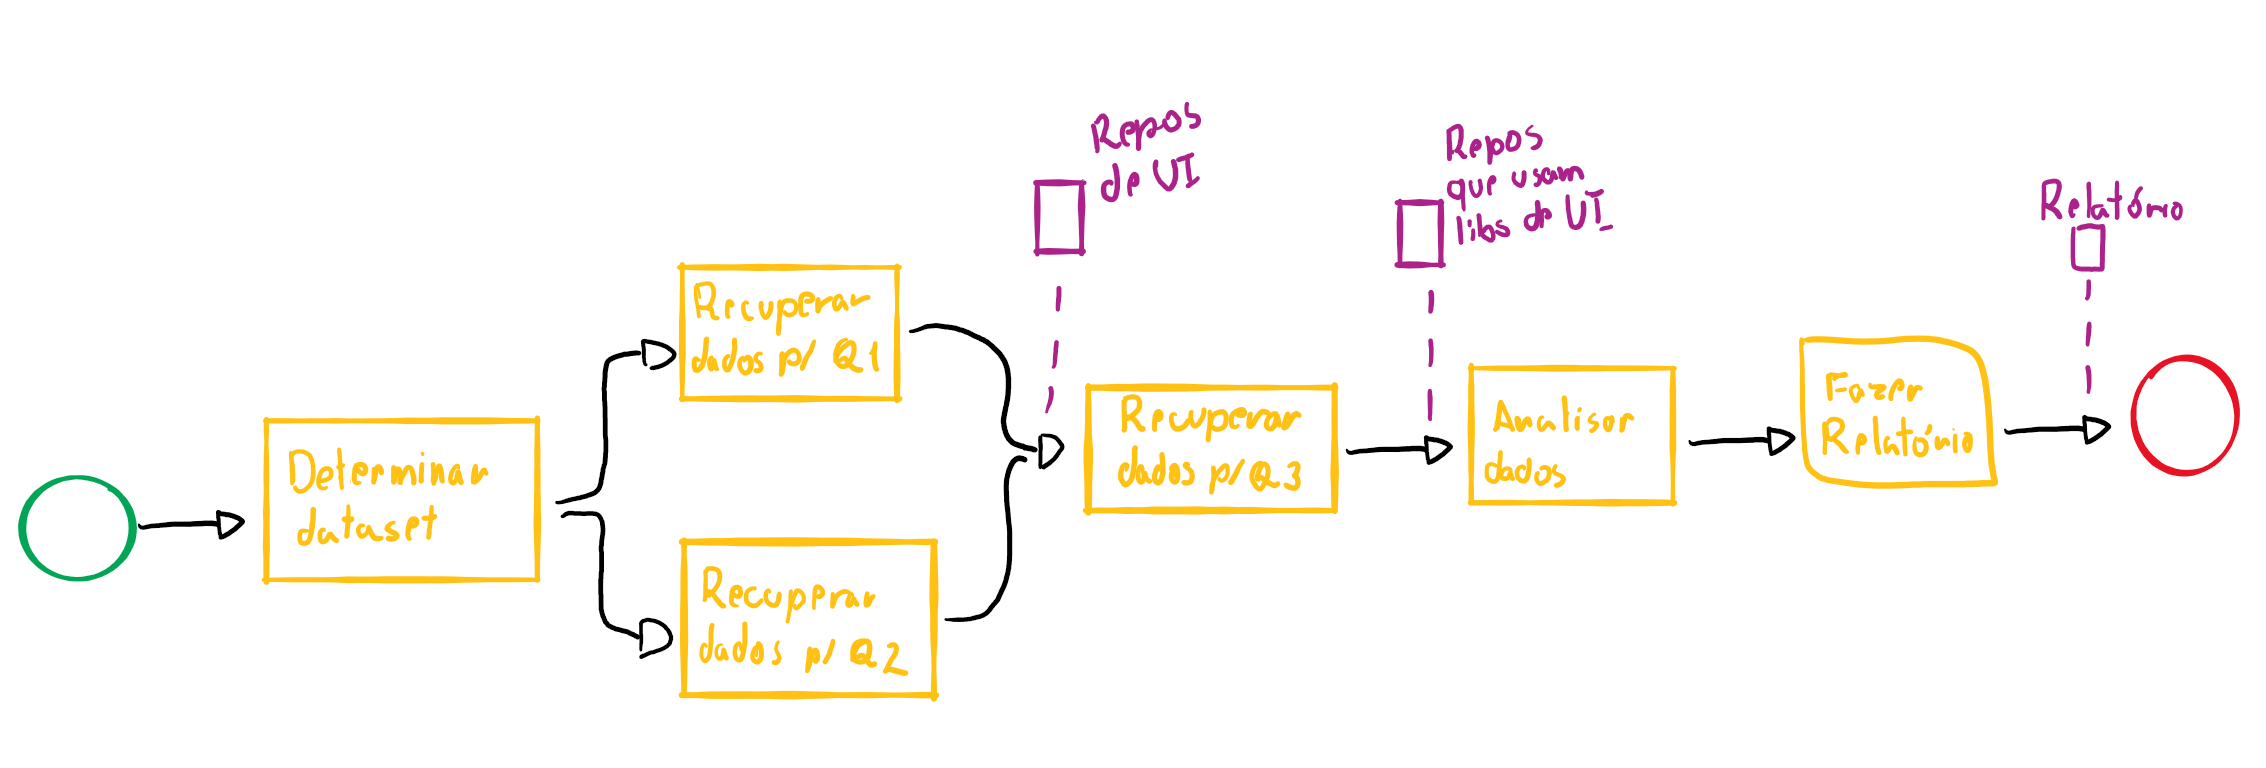 Determinar
dataset
Recuperar
dados p/ Q1
Recuperar
dados p/ Q2
Repos
de UI
Recuperar
dados p/ Q3
Repos
que usam
libs de UI
Analisar
dados
Fazer
Relatório
Relatório